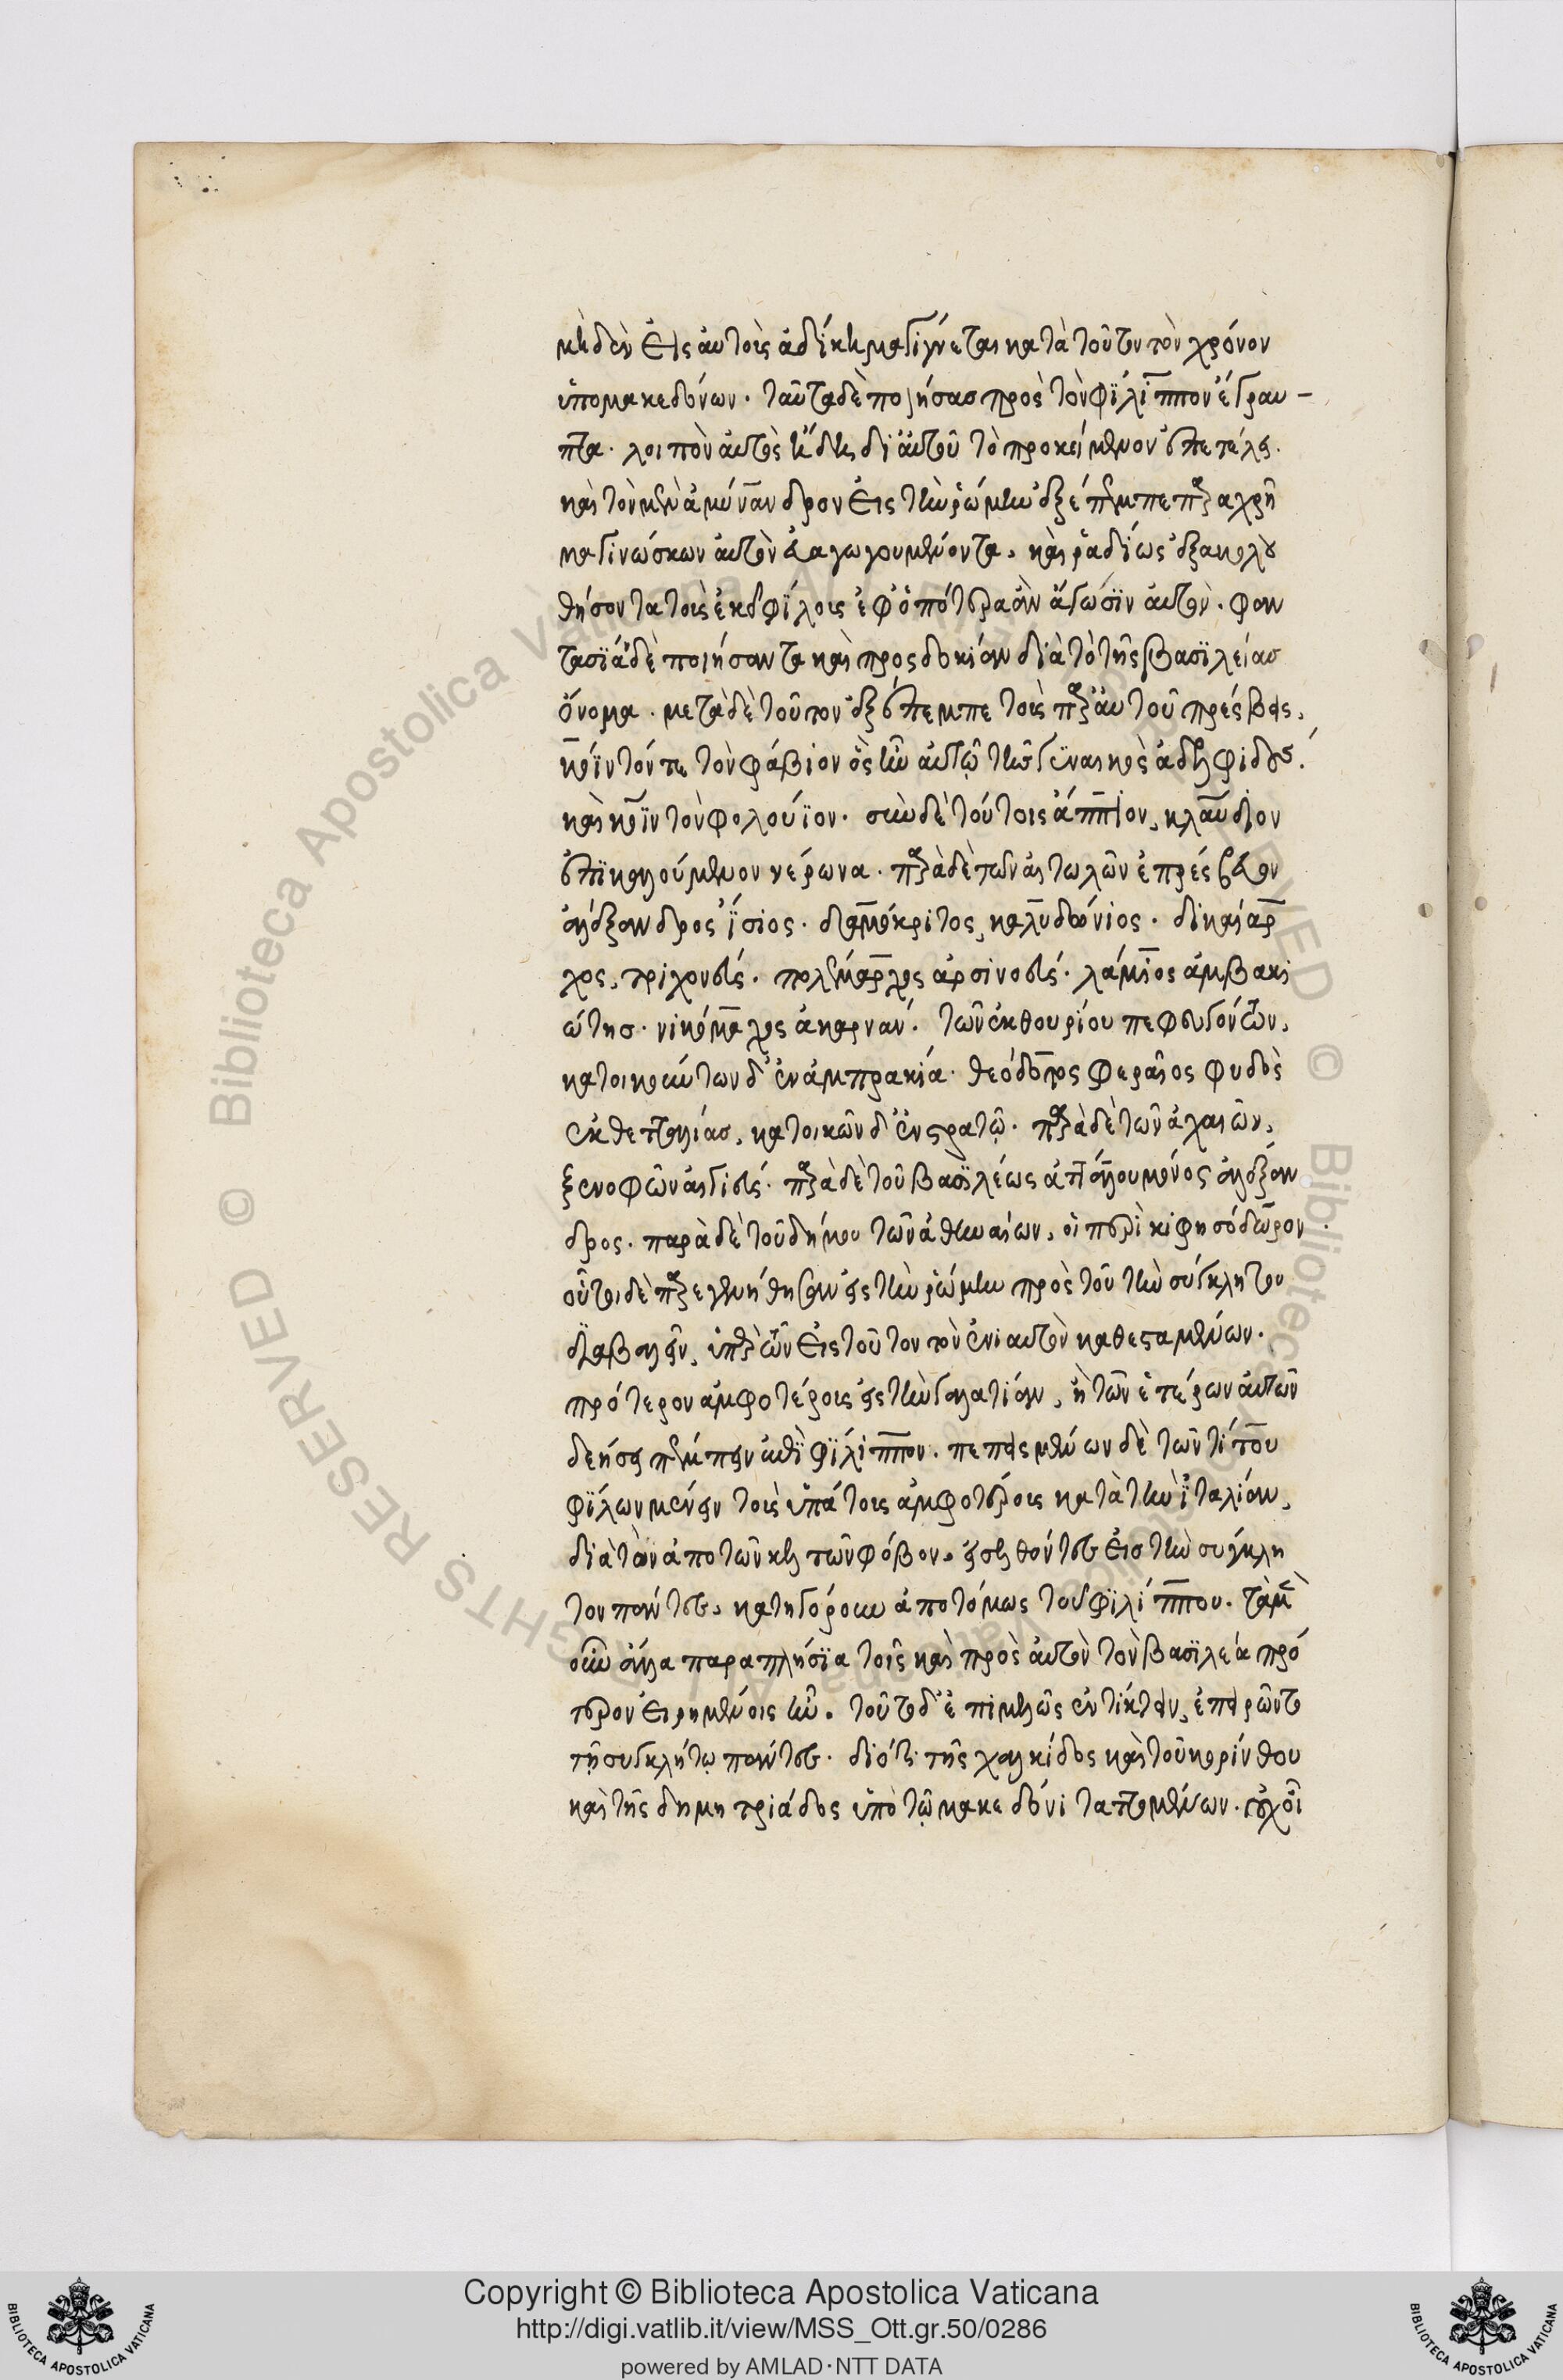 μηδὲν εἰς αυτοὺς ἀδίκημα γίγνεται κατὰ τοῦτον τὸν χρόνον
ὑπο μακεδόνων. ταῦτα δὲ ποιήσας πρὸς τὸν φίλιππον ἔγραυ-
πτα. λοιπὸν αὐτὸς ἤδη δι αὐτοῦ τὸ προκείμενον ἐπετέλει.
καὶ τὸν μὲν ἀμύνανδρον εἰς τὴν ῥώμην ἐξέπεμπε παραχρῆ
μα γινώσκων αὐτὸν εὐαγωγουμένοντα, καὶ ῥαδίως ἐξακολου
θήσοντα τοῖς ἐκεῖ φίλοις ἐφ ὁπότερα ἂν ἄγωσιν αὐτὸν. φαν
τασία δὲ ποιήσαντα καὶ προσδοκίαν διὰ τὸ τῆς βασιλείας
ὄνομα. μετὰ δὲ τοῦτον ἐξέπεμπε τοὺς παρ αυτοῦ πρέσβεις,
κόϊντόν τε τὸν φάβιον ὃς ἦν αὐτῷ τῆς γυναικὸς ἀδελφιδοῦς.
καὶ κόϊντον φολούϊον. σὺν δὲ τούτοις ἄππιον, κλαύδιον
ἐπικαλούμενον νέρωνα. παρὰ δὲ τῶν αἰτωλῶν ἐπρέσβευον
ἀλέξανδρος ἴσιος. δαμόκριτος, καλυδώνιος. δικαίαρ
χος, τριχονιεύς. πολέμαρχος ἀρσινοεύς. λάμιος ἀμβακι
ώτης. νικόμαχος ἀκαρνάν. τῶν ἐκ θουρίου πεφευγόντων,
κατοικούντων δ' ἐν ἀμπρακία. θεόδοτος φεραῖος φυδὸς
ἐκ θετταλίας, κατοικῶν δ' ἐν στρατῷ. παρὰ δὲ τῶν ἀχαιῶν,
ξενοφῶν αἰγιεύς. παρὰ δὲ τοῦ βασιλέως ἀπαλλουμένος ἀλέξαν
δρος. παρὰ δὲ τοῦ δήμου τῶν ἀθηναίων, οἱ περὶ κιφησόδωρον.
οὗτοι δὲ παρεγενήθησαν εἰς τὴν ῥώμην πρὸς τοῦ τὴν σύγκλητον
διαβαλεῖν, ὑπὲρ ὧν εἰς τοῦτον τὸν ἐνιαυτὸν καθεσταμένων.
πρότερον ἀμφοτέροις εἰς τὴν γαλατίαν, ἢ τῶν ἑτέρων αὐτῶν
δεήσει πέμπειν ἐπὶ φίλιππον. πεπεισμένων δὲ τῶν τίτου
φίλων μένειν τοὺς ὑπάτους ἀμφοτέρους κατὰ τὴν ἰταλίαν,
διὰ τὸν ἀπο τῶν κελτῶν φόβον, εἰσελθόντες εἰς τὴν συγκλη
τον πάντες, κατηγόρουν ἀποτόμως τοῦ φιλίππου. τὰ μὲν
οὖν ἄλλα παραπλήσια τοῖς καὶ πρὸς αὐτὸν τὸν βασιλέα πρό
τερον εἰρημένοις ἦν. τοῦτο δ' ἐπιμελῶς ἐντίκτειν, ἐπειρῶντο
τῇ συγκλήτῳ πάντες. διότι τῆς χαλκίδος καὶ τοῦ κορίνθου
καὶ τῆς δημητριάδος ὑπὸ τῷ μακεδόνι ταττομένων. οὐχ οἷ